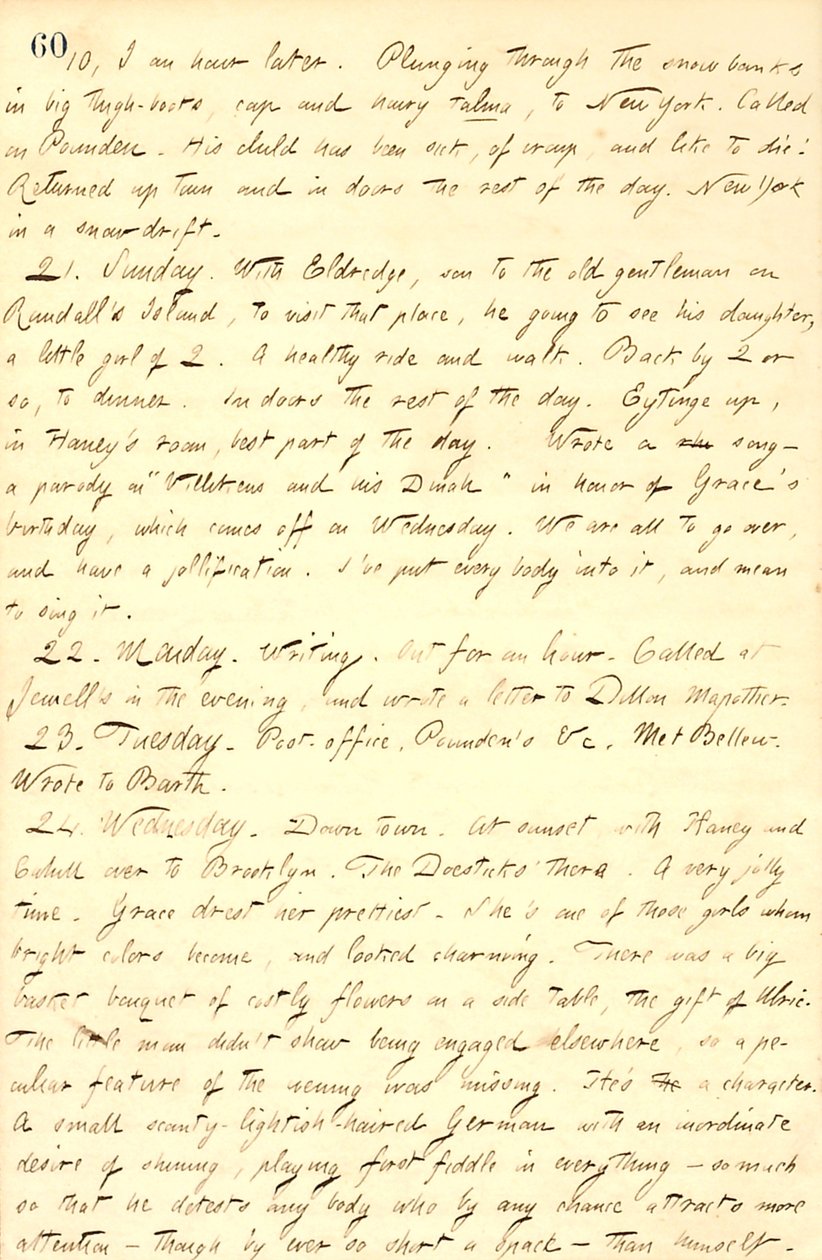 60
10, I an hour later. Plunging through the snow banks
in big thigh-boots, cap and hairy talma, to New York. Called
on Pounden. His child has been sick, of croup, and like to die.
Returned up town and in doors the rest of the day. New York
in a snow drift.
21. Sunday. With Eldredge, son to the old gentleman on
Randall's Island, to visit that place, he going to see his daughter,
a little girl of 2. A healthy ride and walk. Back by 2 or
so, to dinner. In doors the rest of the day. Eytinge up,
in Haney's room, best part of the day. Wrote a song —
a parody on "Villikens and his Dinah" in honor of Grace's
birthday, which comes off on Wednesday. We are all to go over,
and have a jollification. I've put every body into it, and mean
to sing it.
22. Monday. Writing. Out for an hour. Called at
Jewell's in the evening, and wrote a letter to Dillon Mapother.
23. Tuesday. Post-office, Pounden's &c. Met Bellew.
Wrote to Barth.
24. Wednesday. Down town. At sunset with Haney and
Cahill over to Brooklyn. The Doesticks' there. A very jolly
time. Grace drest her prettiest. She's one of those girls whom
bright colors become, and looked charming. There was a big
basket bouquet of costly flowers on a side table, the gift of Ulric.
The little man didn't show being engaged elsewhere, so a pe-
culiar feature of the evening was missing. He's a character.
A small scanty-lightish-haired German with an inordinate
desire of shining, playing first fiddle in everything — so much
so that he detests any body who by any chance attracts more
attention — though by ever so short a space — than himself